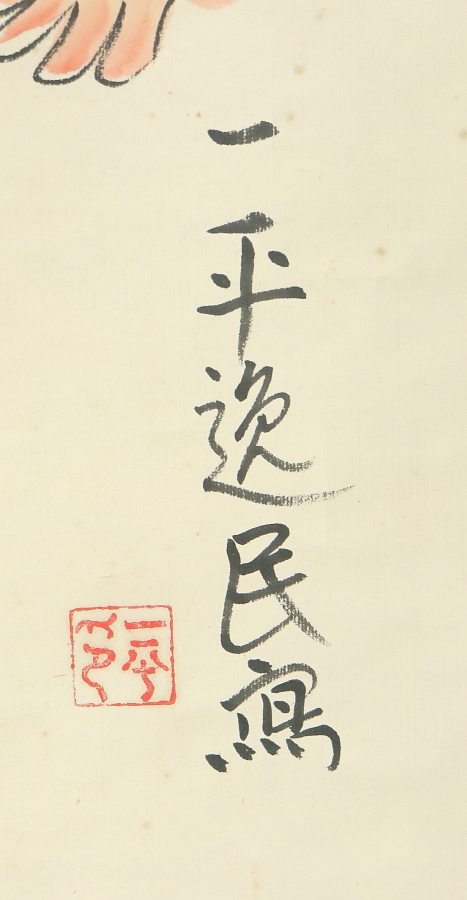 一平逸民寫
一平